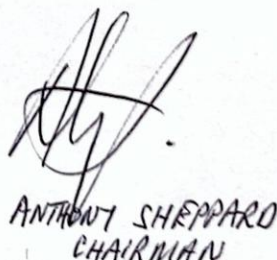 ANTHONY SHEPPARD
CHAIRMAN